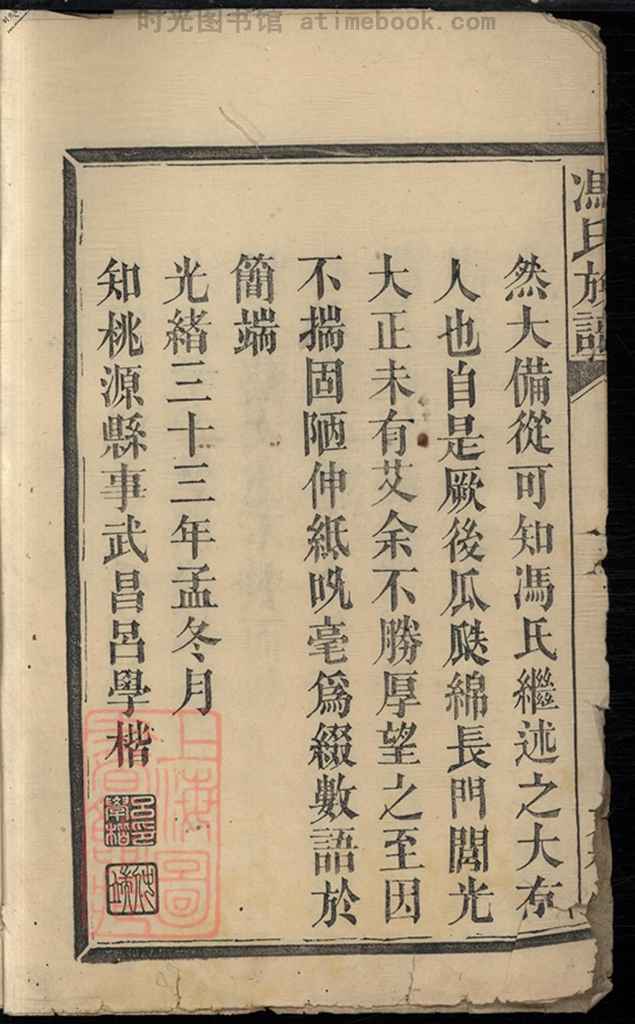 时光图书馆 atimebook.com
馮氏族譜
然大備從可知馮氏繼述之大有
人也自是厥後瓜瓞綿長門閭光
大正未有艾余不勝厚望之至因
不揣固陋伸紙吮毫爲綴數語於
簡端
光緒三十三年孟冬月
知桃源縣事武昌呂學楷
上海圖